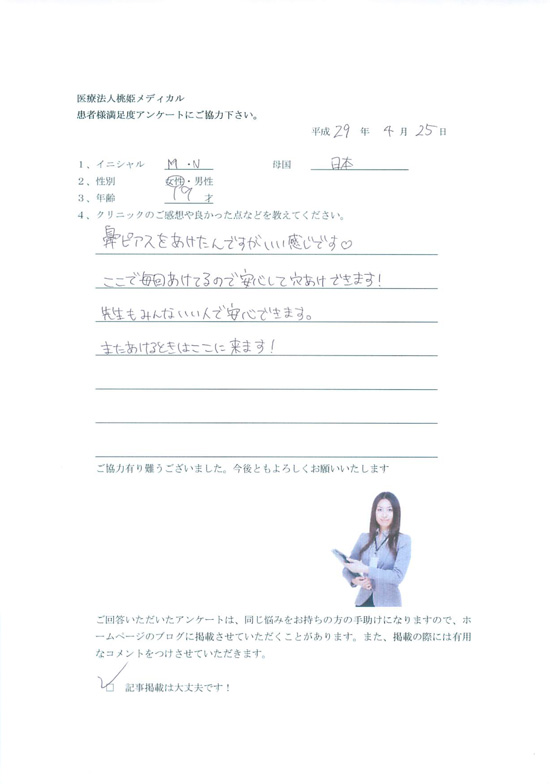 医療法人桃姫メディカル
患者様満足度アンケートにご協力下さい。
平成 29 年 4 月 25 日
1、イニシャル M・N 母国 日本
2、性別 女性・男性
3、年齢 19 才
4、クリニックのご感想や良かった点などを教えてください。
鼻ピアスをあけたんですがいい感じです♡
ここで毎回あけてるので安心して穴あけできます!
先生もみんないい人で安心できます。
またあけるときはここに来ます!
ご協力有り難うございました。今後ともよろしくお願いいたします
ご回答いただいたアンケートは、同じ悩みをお持ちの方の手助けになりますので、ホ
ームページのブログに掲載させていただくことがあります。また、掲載の際には有用
なコメントをつけさせていただきます。
☑ 記事掲載は大丈夫です!